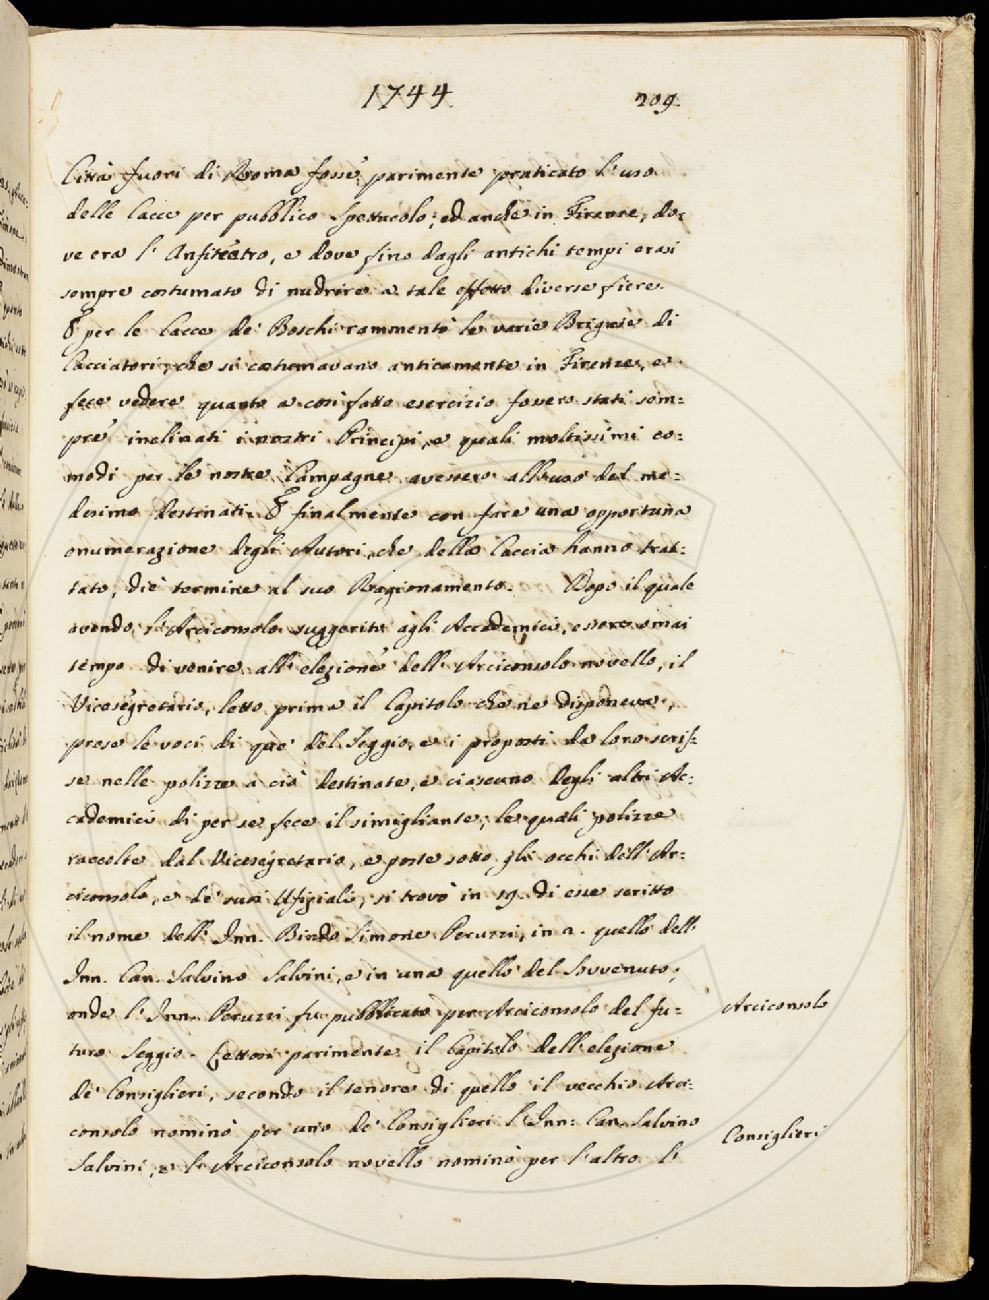 1744
209.
Città fuori di Roma fosse parimente praticato l'uso
delle Cacce per pubblico Spettacolo; ed anche in Firenze, do=
ve era l'Anfiteatro, e dove fino dagli antichi tempi erasi
sempre costumato di nudrire a tale effetto diverse fiere.
E per le Cacce de' Boschi rammentò le varie Brigate di
Cacciatori, che si costumavano anticamente in Firenze, e
fece vedere quanto a così fatto esercizio fossero stati sem=
pre inclinati i nostri Principi, e quali moltissimi co=
modi per le nostre Campagne avessero all'uso del me=
desimo destinati. E finalmente con fare una opportuna
enumerazione degli Autori, che della Caccia hanno trat=
tato, diè termine al suo Ragionamento. Dopo il quale
avendo l'Arciconsolo suggerito agli Accademici, essere omai
tempo di venire all'elezione dell'Arciconsolo novello, il
Vicesegretario, letto prima il Capitolo che ne disponeva,
prese le voci di que' del Seggio, e i proposti da loro scris=
se nelle polizze a ciò destinate, e ciascuno degli altri Ac=
cademici di per se fece il simigliante; le quali polizze
raccolte dal Vicesegretario, e poste sotto gli occhi dell'Ar=
ciconsolo, e de' suoi Ufiziali, si trovò in 19. di esse scritto
il nome dell'Inn. Bindo Simone Peruzzi, in 2. quello dell'
Inn. Can. Salvino Salvini, e in una quello del Sovvenuto;
onde l'Inn. Peruzzi fu pubblicato per Arciconsolo del fu=
turo Seggio. Lettosi parimente il Capitolo dell'elezione
de' Consiglieri, secondo il tenore di quello il vecchio Arci=
consolo nominò per uno de' Consiglieri l'Inn. Can. Salvino
Salvini, e l'Arciconsolo novello nominò per l'altro l'
Arciconsolo
Consiglieri